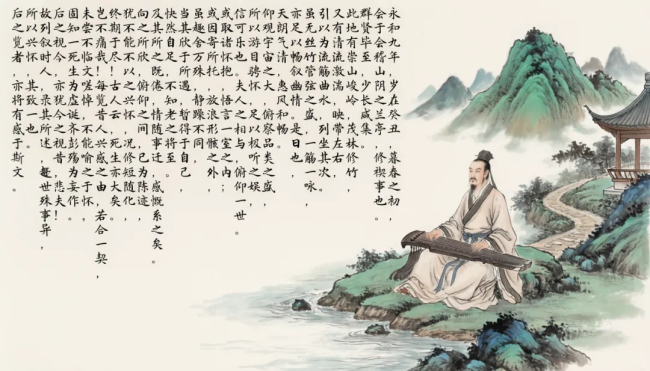 永和九年,岁在癸丑,暮春之初,
会于会稽山阴之兰亭,修禊事也。
群贤毕至,少长咸集。
此地有崇山峻岭,茂林修竹,
又有清流激湍,映带左右
引以为流觞曲水,列坐其次。
虽无丝竹管弦之盛,一觞一咏,
亦足以畅叙幽情。是日也,
天朗气清,惠风和畅。
仰观宇宙之大,俯察品类之盛,
所以游目骋怀,足以极视听之娱,
信可乐也。夫人之相与,俯仰一世。
或取诸怀抱,悟言一室之内;
或因寄所托,放浪形骸之外,
虽趣舍万殊,静躁不同,
当其欣于所遇,暂得于己,
快然自足,不知老之将至。
及其所之既倦,情随事迁,感慨系之矣。
向之所欣,俯仰之间,已为陈迹,
犹不能不以之兴怀,况修短随化,
终期于尽!古人云:死生亦大矣。
岂不痛哉!每览昔人兴感之由,若合一契,
未尝不临文嗟悼,不能喻之于怀。
固知一死生为虚诞,齐彭殇为妄作。
后之视今,亦犹今之视昔,悲夫!
故列叙时人,录其所述,虽世殊事异,
所以兴怀,其致一也。
后之览者,亦将有感于斯文。